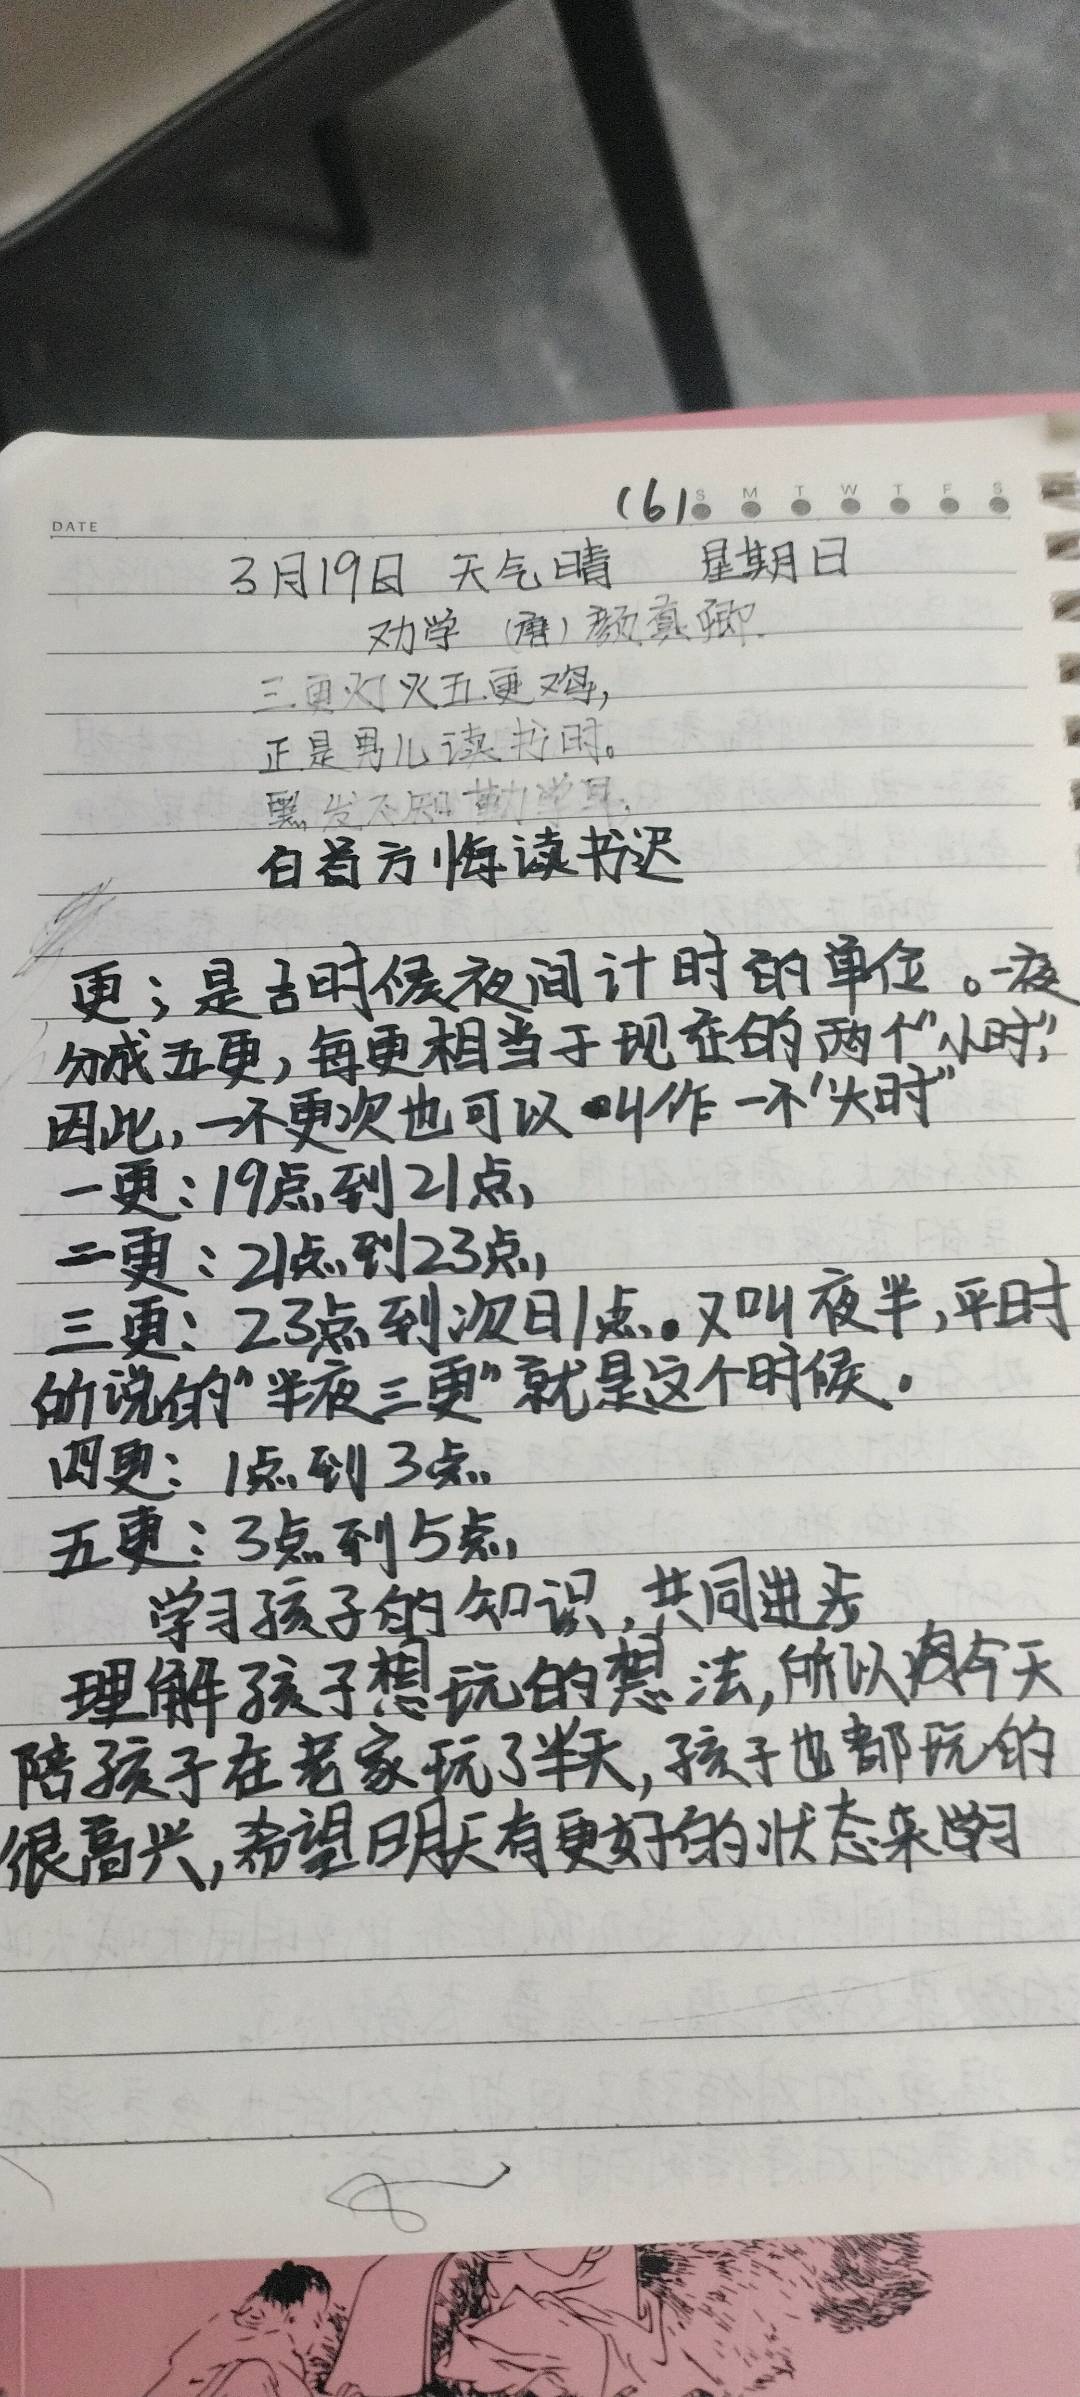 (6) S M T W T F S
DATE
3月19日 天气晴 星期日
劝学 (唐) 颜真卿.
三更灯火五更鸡,
正是男儿读书时。
黑发不知勤学早,
白首方悔读书迟
更;是古时候夜间计时的单位。一夜
分成五更,每更相当于现在的两个"小时",
因此,一个更次也可以叫作一个"大时"
一更:19点到21点,
二更:21点到23点,
三更:23点到次日1点.又叫夜半,平时
所说的"半夜三更"就是这个时候.
四更:1点到3点
五更:3点到5点,
学习孩子的知识,共同进步
理解孩子想玩的想法,所以今天
陪孩子在老家玩了半天,孩子也都玩的
很高兴,希望明天有更好的状态来学习